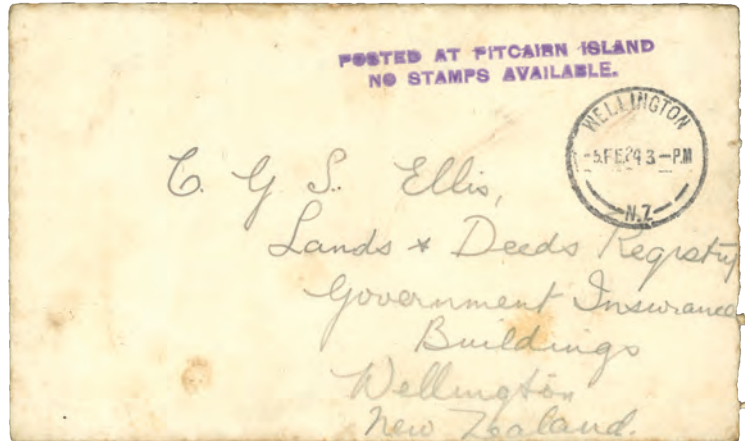 POSTED AT PITCAIRN ISLAND
NO STAMPS AVAILABLE.
WELLINGTON
-5.FE.24 3-P.M
N.Z
C. G. S. Ellis,
Lands & Deeds Registry
Government Insurance
Buildings
Wellington
New Zealand.